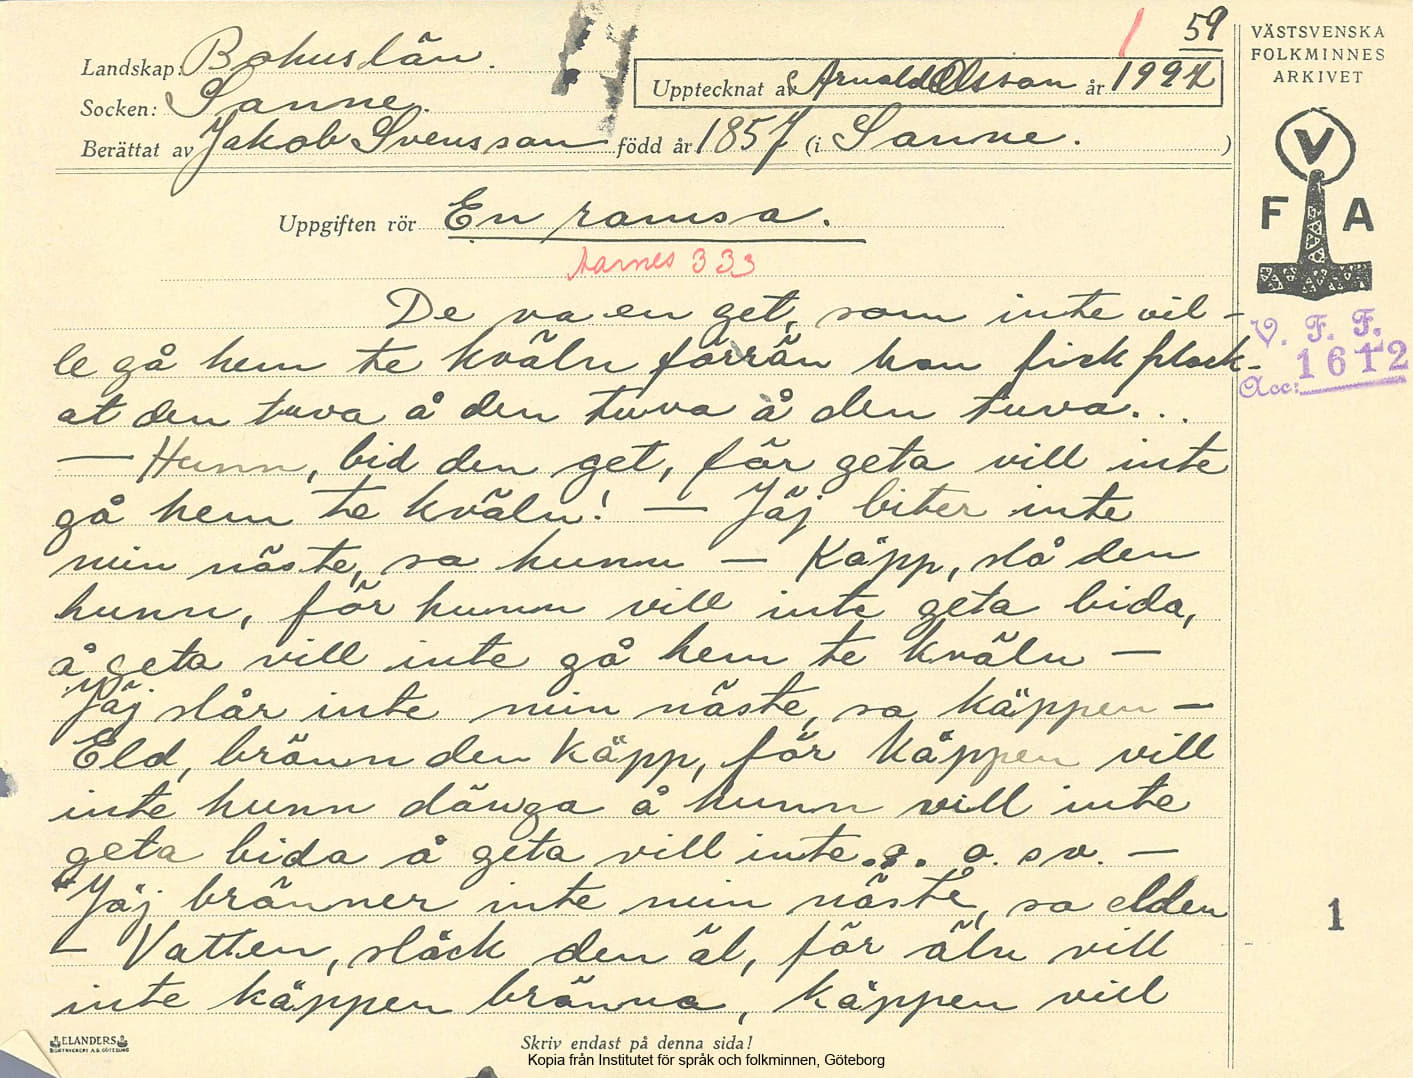 1 59
Landskap: Bohuslän.
Upptecknat av Arnold Olsson år 1927
Socken: Sanne.
Berättat av Jakob Svensson född år 1857 (i Sanne. )
VÄSTSVENSKA
FOLKMINNES
ARKIVET
V
F A
V. F. F.
Acc: 1612
Uppgiften rör En ramsa.
Aarnes 333
De va en get, som inte vil-
le gå hem te kväln förrän han fick plock-
at den tuva å den tuva å den tuva...
— Hunn, bid den get, för geta vill inte
gå hem te kväln! — Jäj biter inte
min näste, sa hunn — Käpp, slå den
hunn, för hunn vill inte geta bida,
å geta vill inte gå hem te kväln —
Jäj slår inte min näste, sa käppen —
Eld, bränn den käpp, för käppen vill
inte hunn dänga å hunn vill inte
geta bida å geta vill inte.o. o. sv. —
Jäj bränner inte min näste, sa elden
— Vatten, släck den äl, för äln vill
inte käppen bränna, käppen vill
1
ELANDERS
BOKTRYCKERI A.B. GÖTEBORG
Skriv endast på denna sida!
Kopia från Institutet för språk och folkminnen, Göteborg